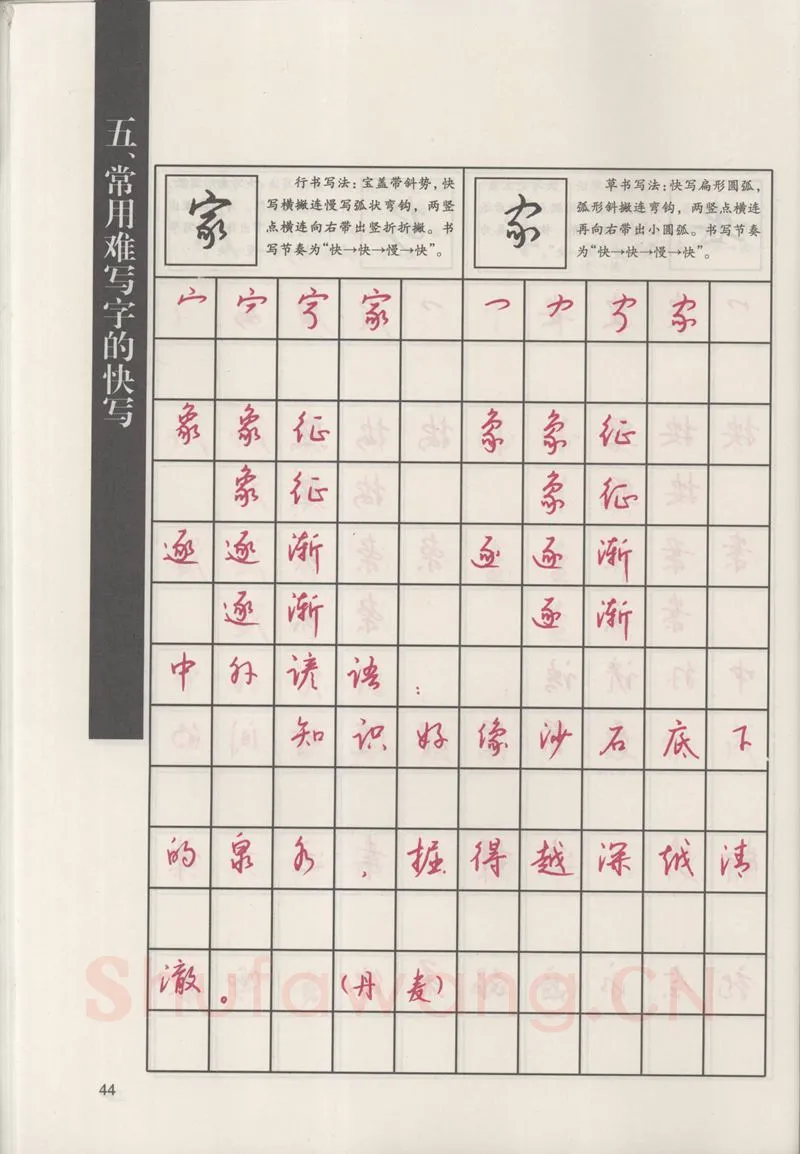 五、常用难写字的快写
家
行书写法：宝盖带斜势，快
写横撇连慢写弧状弯钩，两竖
点横连向右带出竖折折撇。书
写节奏为“快→快→慢→快”。
家
草书写法：快写扁形圆弧，
弧形斜撇连弯钩，两竖点横连
再向右带出小圆弧。书写节奏
为“快→快→慢→快”。
家 家
象象征 象象征
象征 象征
逐逐渐 逐逐渐
逐渐 逐渐
中外谚语：
知识好像沙石底下
的泉水，掘得越深越清
澈。（丹麦）
Shufawang.CN
44